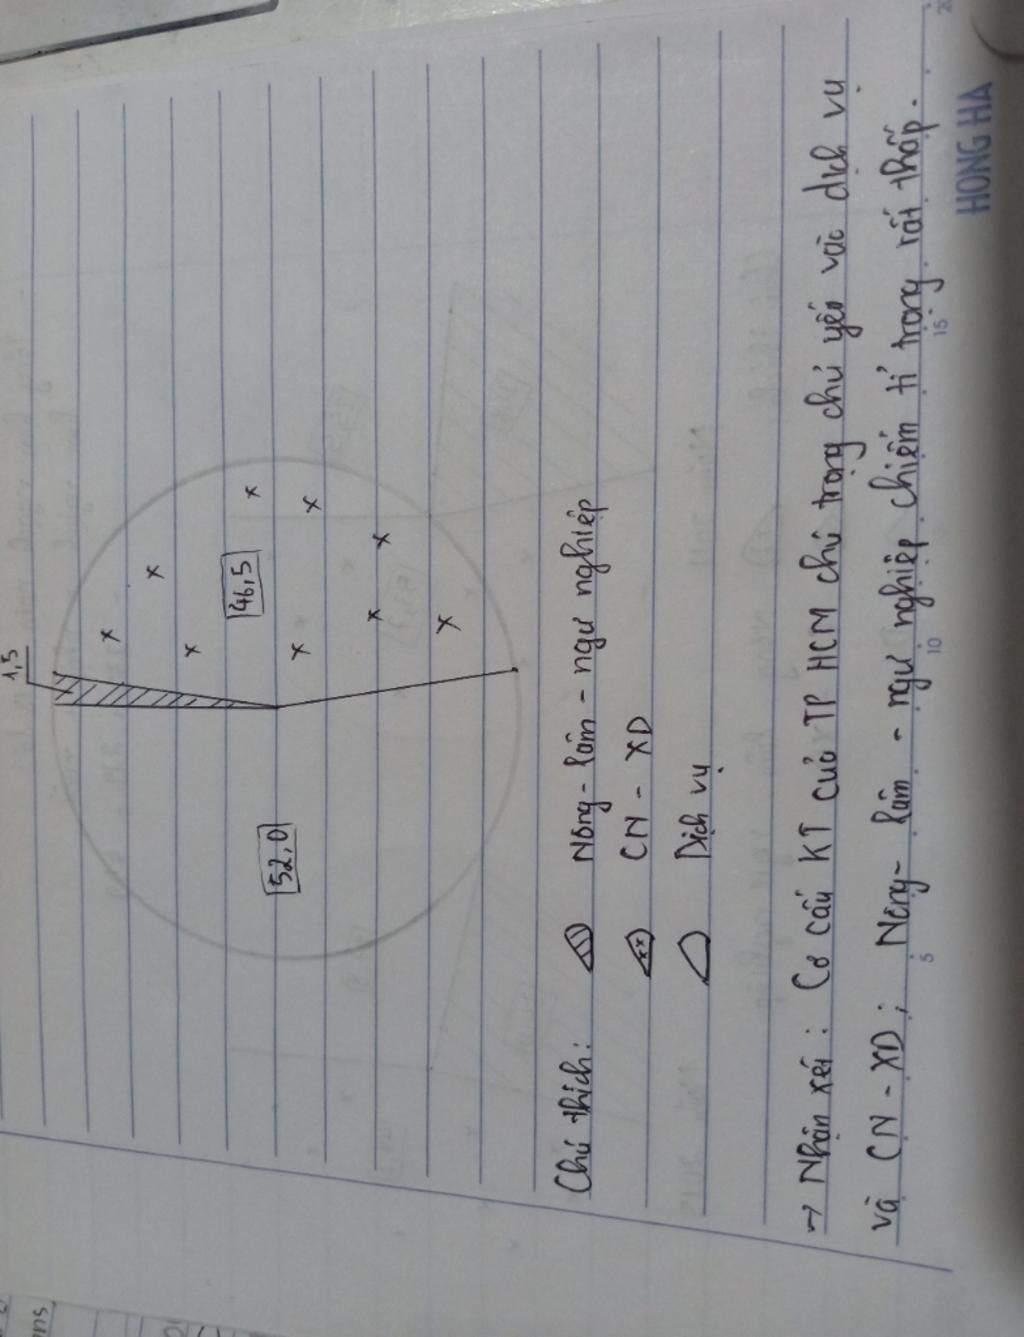 1,5
46,5
52,0
Chú thích:
Nông - lâm - ngư nghiệp
CN - XD
Dịch vụ
→ Nhận xét : Cơ cấu KT của TP HCM chú trọng chủ yếu vào dịch vụ
và CN - XD ; Nông - lâm - ngư nghiệp chiếm tỉ trọng rất thấp.
5 10 15 20
HONG HA